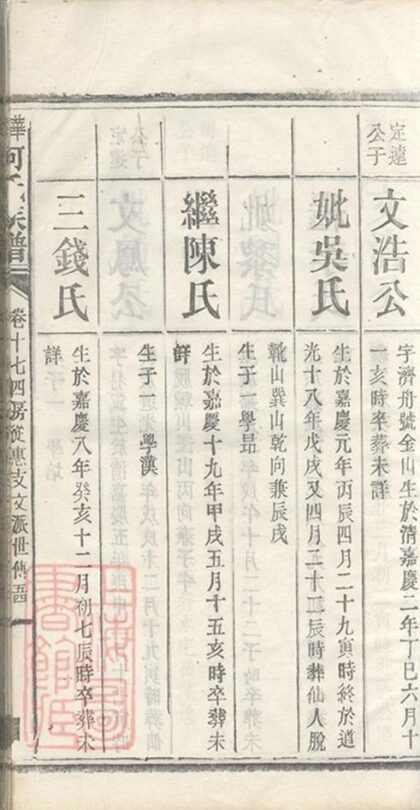 定遠
公子
文浩公
字濟舟號金山生於清嘉慶二年丁巳六月十
一亥時卒葬未詳
妣吳氏
生於嘉慶元年丙辰四月二十九寅時終於道
光十八年戊戌又四月二十 辰時葬仙人脫
靴山巽山乾向兼辰戌
生子一 學昂
繼陳氏
生於嘉慶十九年甲戌五月十五亥時卒葬未
詳
生子一 學漢
三錢氏
生於嘉慶八年癸亥十二月初七辰時卒葬未
詳
何氏族譜 卷十七四房從惠支文派世傳